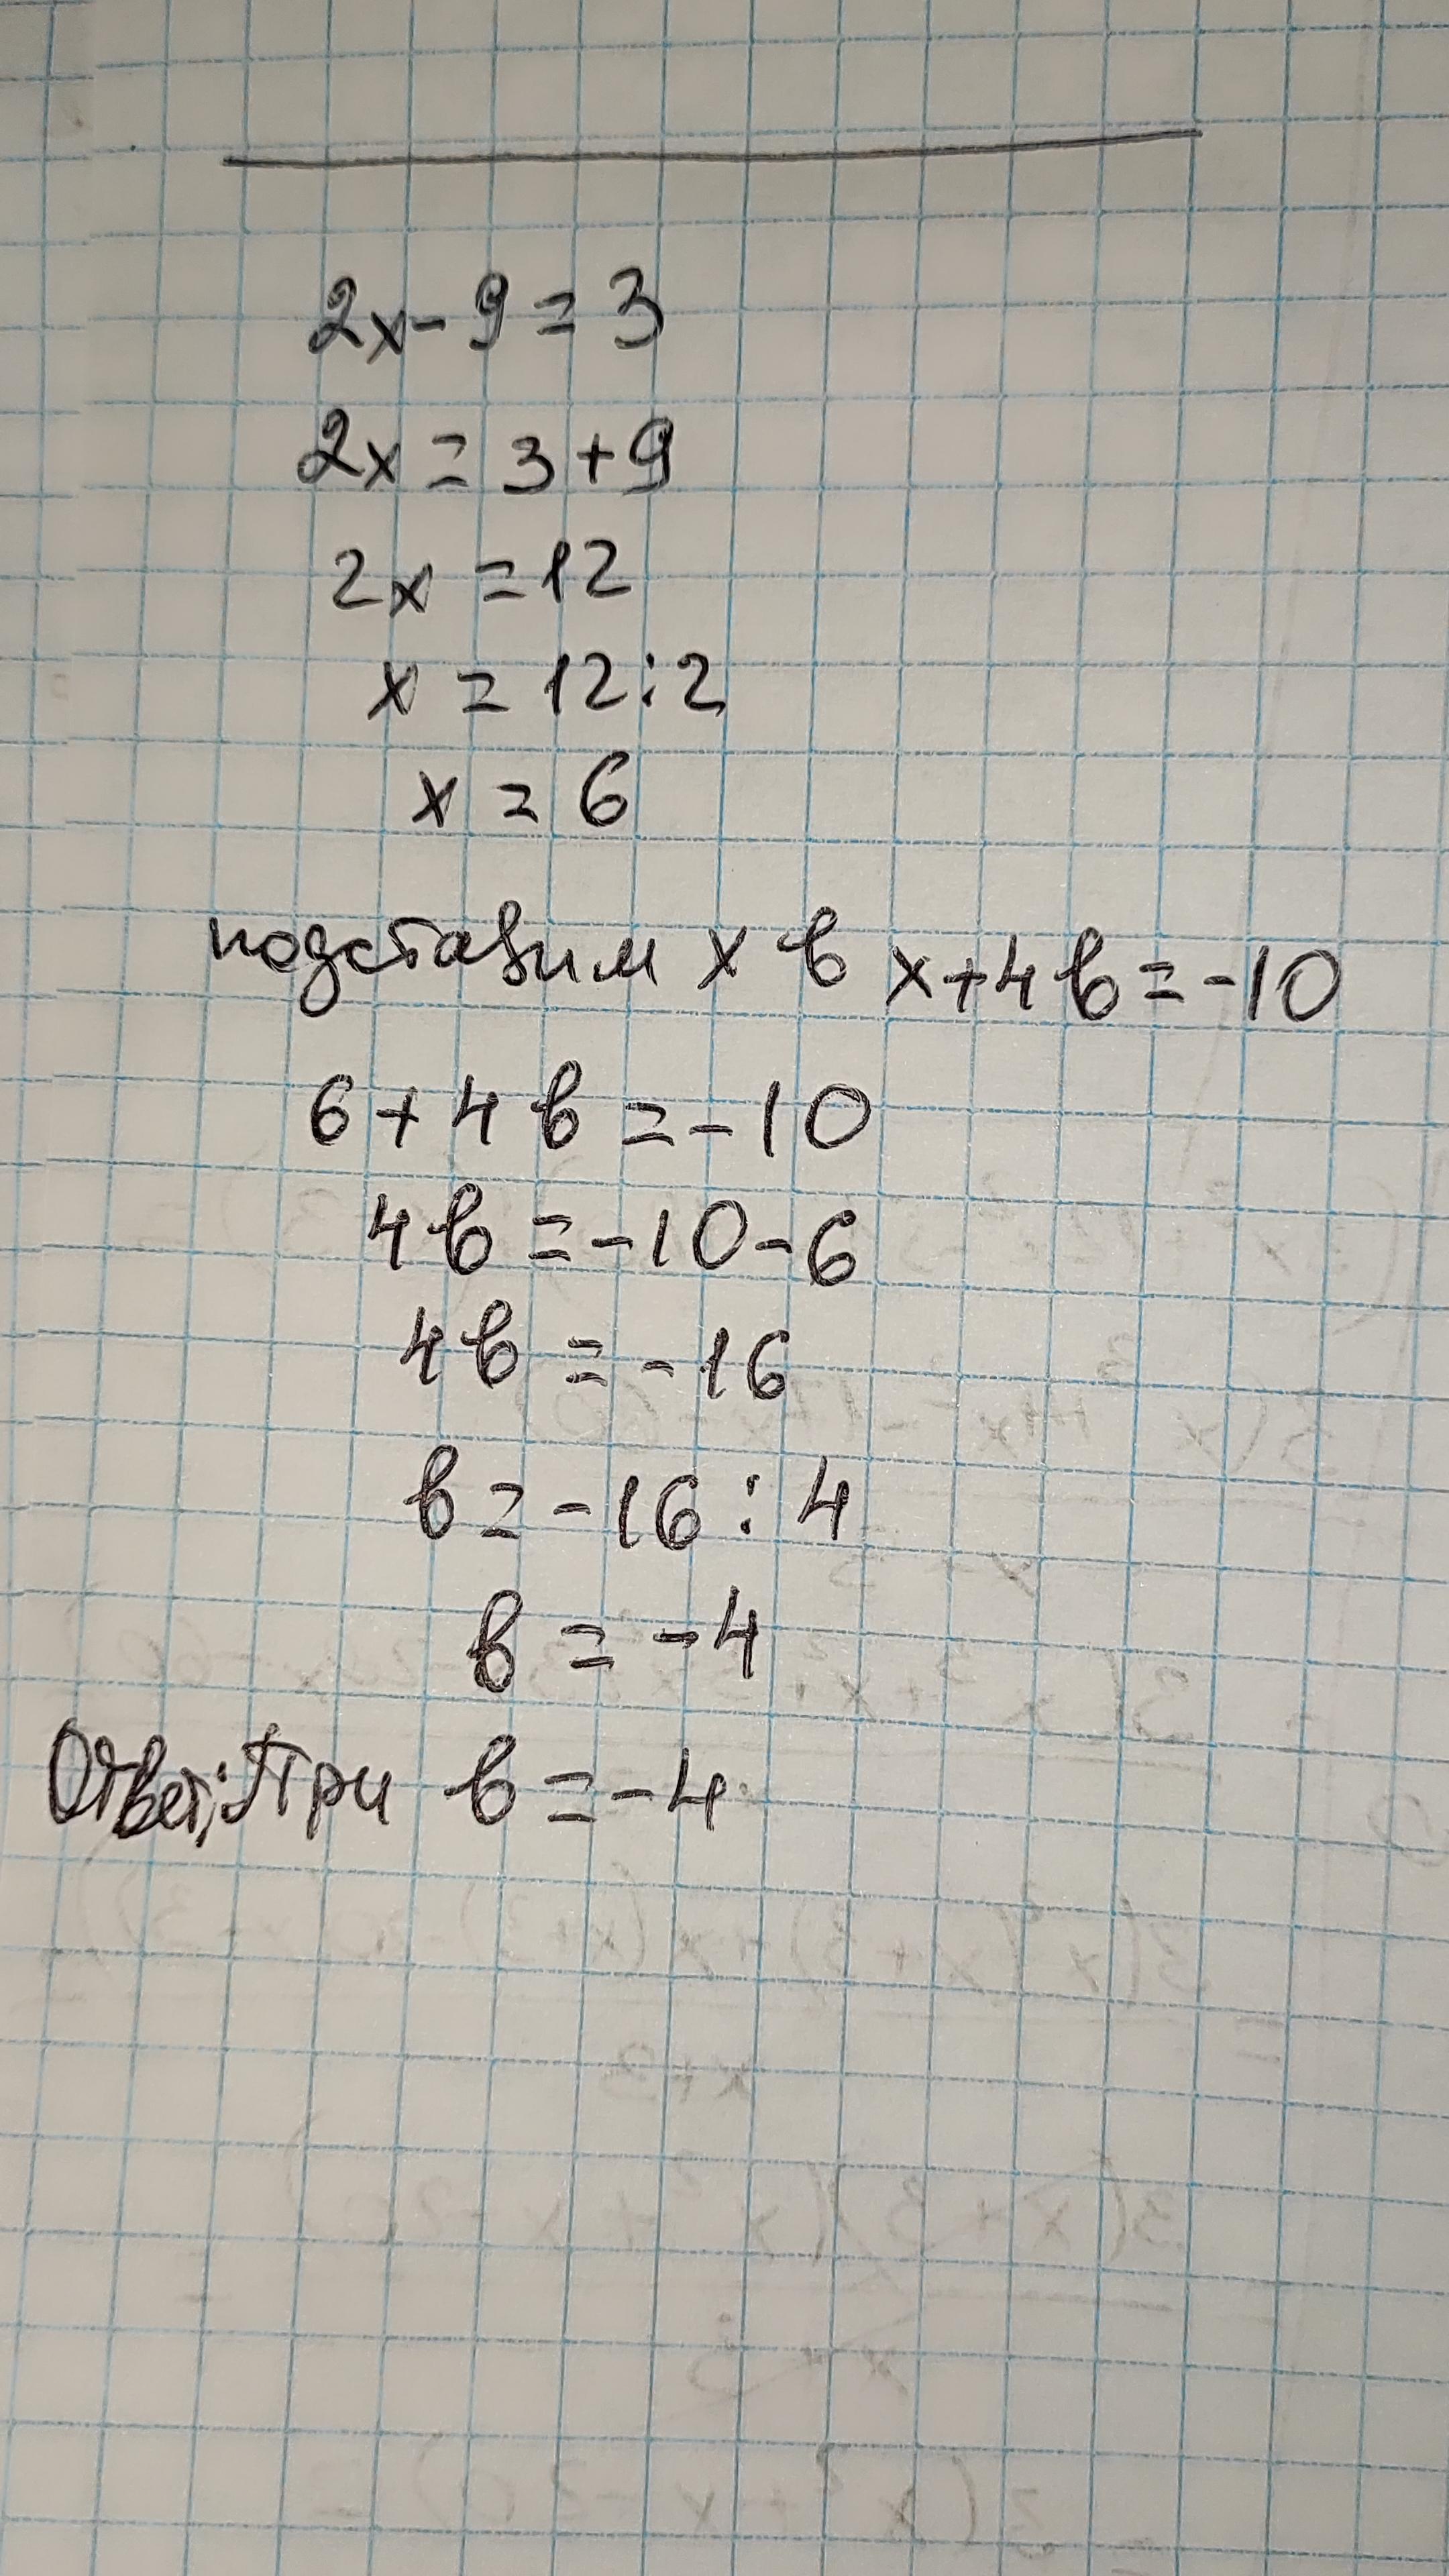 2x-9=3
2x=3+9
2x=12
x=12:2
x=6
подставим x в x+4b=-10
6+4b=-10
4b=-10-6
4b=-16
b=-16:4
b=-4
Ответ: При b=-4